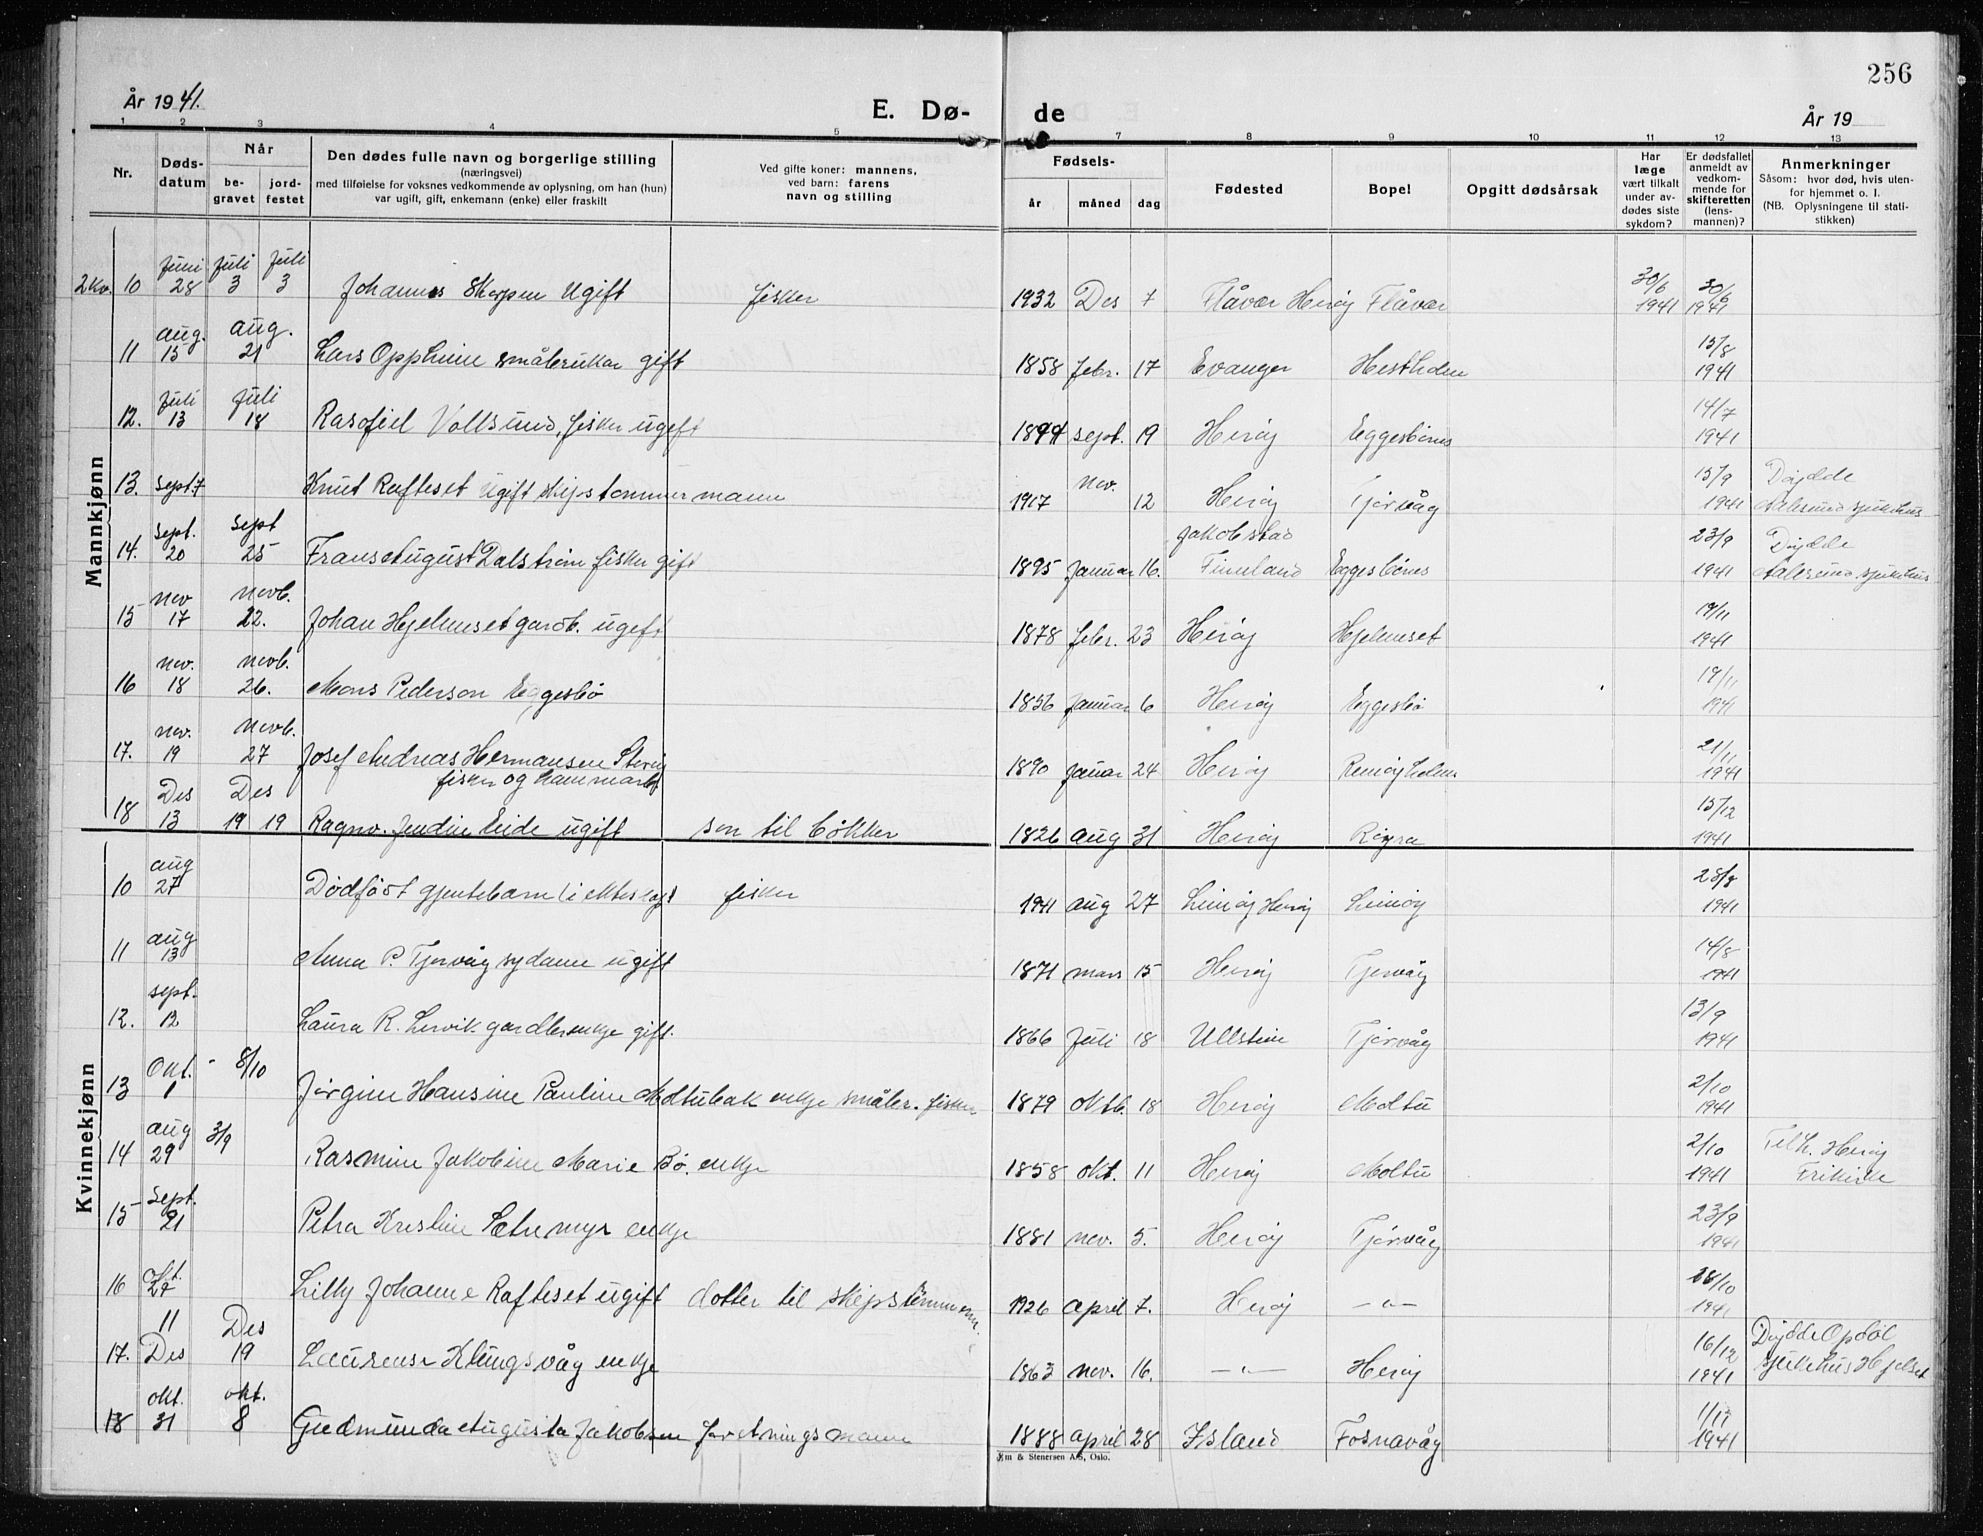 256
År 1941.
E. Dø-
de
År 19
1 2 3 4 5 7 8 9 10 11 12 13
Nr.
Døds-
datum
Når
be-
gravet
jord-
festet
Den dødes fulle navn og borgerlige stilling
(næringsvei)
med tilføielse for voksnes vedkommende av oplysning, om han (hun)
var ugift, gift, enkemann (enke) eller fraskilt
Ved gifte koner: mannens,
ved barn: farens
navn og stilling
Fødsels-
år måned dag
Fødested
Bopel
Opgitt dødsårsak
Har
læge
vært tilkalt
under av-
dødes siste
sykdom?
Er dødsfallet
anmeldt av
vedkom-
mende for
skifteretten
(lens-
mannen)?
Anmerkninger
Såsom: hvor død, hvis uten-
for hjemmet o. l.
(NB. Oplysningene til stati-
stikken)
Mannkjønn
2 Kv. 10 Juni 28 Juli 3 Juli 3 Johannes Skorpen Ugift fisker 1932 Des 7 Flåvær Herøy Flåvær 30/6 1941 30/6 1941
11 aug. 15 aug. 21 Lars Oppheim småbrukar gift 1858 febr. 17 Evanger Hestholm 15/8 1941
12. Juli 13 Juli 18 Rasofiel Vollsund, fisker ugift 1894 sept. 19 Herøy Eggesbønes 14/7 1941
13. sept. 7 Knut Rafteset ugift skipstømmermann 1917 nov. 12 Herøy Tjørvåg 15/9 1941 Døydde Aalesund sjukehus
14. sept. 20 sept 25 Frans August Dalstrøm fisker gift 1895 Januar 16. Jakobstad Finnland Eggesbønes 23/9 1941 Døydde Aalesund sjukehus
15 nov 17 novb. 22. Johan Hjelmeset gardb. ugift 1878 febr. 23 Herøy Hjelmeset 19/11 1941
16 nov. 18 novb. 26. Mons Pederson Eggesbø 1856 Januar 6 Herøy Eggesbø 19/11 1941
17. nov. 19 novb. 27 Josef Andreas Hermansen
fisker og 1890 Januar 24 Herøy Remøyholm 21/11 1941
18 Des 13 Des 19 19 Ragnv. Jendin Eide ugift son til bøkker 1826 aug 31 Herøy Røyra 15/12 1941
Kvinnekjønn
10 aug 27 Dødfødt gjentebarn (i ekteskap) fisker 1941 aug 27 Leinøy Herøy Leinøy 28/8 1941
11 aug 13 Anna P. Tjørvåg sydame ugift 1871 mars 15 Herøy Tjørvåg 14/8 1941
12. sept. 12 Laura R. Lervik gardbr.enkje gift. 1866 Juli 18 Ullstein Tjørvåg 13/9 1941
13 Okt. 1 8/10 Jørgine Hansine Pauline Moltubak enkje småbr. fisker 1879 oktb. 18 Herøy Moltu 2/10 1941
14 aug 29 3/9 Rasmine Jakobine Marie Bø. enkje 1858 okt. 11 Herøy Moltu 2/10 1941 Tilh. Herøy Frikirke
15 Sept. 21 Petra Kristine Sætremyr enkje 1881 nov. 5. Herøy Tjørvåg 23/9 1941
16 okt. 27 Lilly Johanne Rafteset ugift dotter til skipstømmerm. 1926 april 7. Herøy —"— 28/10 1941
17. 11 Des Des 19 Laurense Klungsvåg enkje 1863 nov. 16. —"— Herøy 16/12 1941 Døydde Opdøl sjukehus Hjelset
18 okt. 31 okt. 8 Gudmunda Augusta Jakobsen forretningsmann 1888 april 28 Island Fosnavåg 1/12 1941
Em & Stenersen A/S, Oslo.